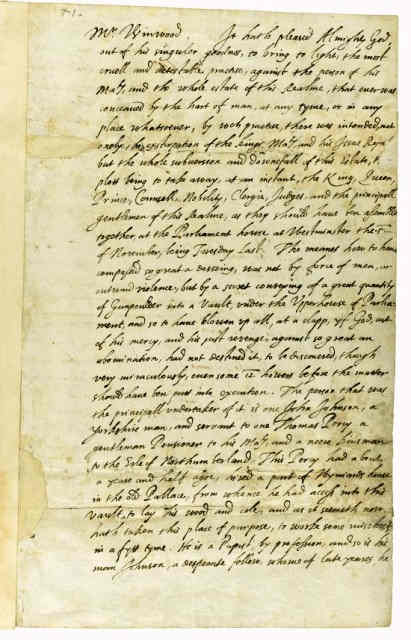 71.
Mr. Winwood. It hath pleased Almighty God
out of his singuler goodnes, to bring to light, the most
cruell and detestable practize, against the person of his
Maty. and the whole estate of this Realme, that ever was
conceaved by the hart of man, at any tyme, or in any
place whatsoever, by wch practize, there was intended, not
onely the extirpation of the kings Maty and his Issue Royall
but the whole subversion and downefall of this Estate, the
plott being to take away, at an instant, the King, Queen,
Prince, Councell, Nobility, Clergie, Judges, and the principall
gentlemen of this Realme, as they should have ben assembled
together, at the Parliament house, at Westminster the 5
of November, being Tuesday last. The meanes how to have
compassed so great a , was not by force of men, or
outward violence, but by a secret conveying of a great quantity
of Gunpowder into a Vault, under the Upper house of Parlia
ment, and so to have blowen up all, at a clapp, yf God, out
of his mercy, and his just revenge, against so great an
abomination, had not destined it, to be discovered, though
very miraculously, even some 12 howers before the matter
should have ben putt into execution. The person that was
the principall undertaker of it is one John Johnson, a
Yorkshire man, and servant to one Thomas Percy, a
gentleman Pensioner to his Maty and a neere kinsman
to the Erle of Northumberland. This Percy had about
a yeare and half agoe, hired a part of Vyniards house
in the old Pallace, from whence he had access into this
Vault, to lay his wood and cole, and as it seemeth now,
hath taken this place of purpose, to worke some mischief
in a fytt tyme. He is a Papist by profession, and so is his
man Johnson, a desperate fellow, whome of late yeares he